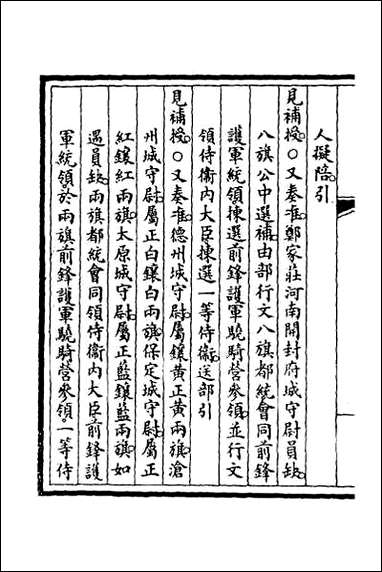 人擬陪引
見補授○又奏准鄭家莊河南開封府城守尉員缺
八旗公中選補由部行文八旗都統會同前鋒
護軍統領揀選前鋒護軍驍騎營參領並行文
領侍衞內大臣揀選一等侍衞送部引
見補授○又奏准德州城守尉屬鑲黃正黃兩旗滄
州城守尉屬正白鑲白兩旗保定城守尉屬正
紅鑲紅兩旗太原城守尉屬正藍鑲藍兩旗如
遇員缺兩旗都統會同領侍衞內大臣前鋒護
軍統領於兩旗前鋒護軍驍騎營參領一等侍